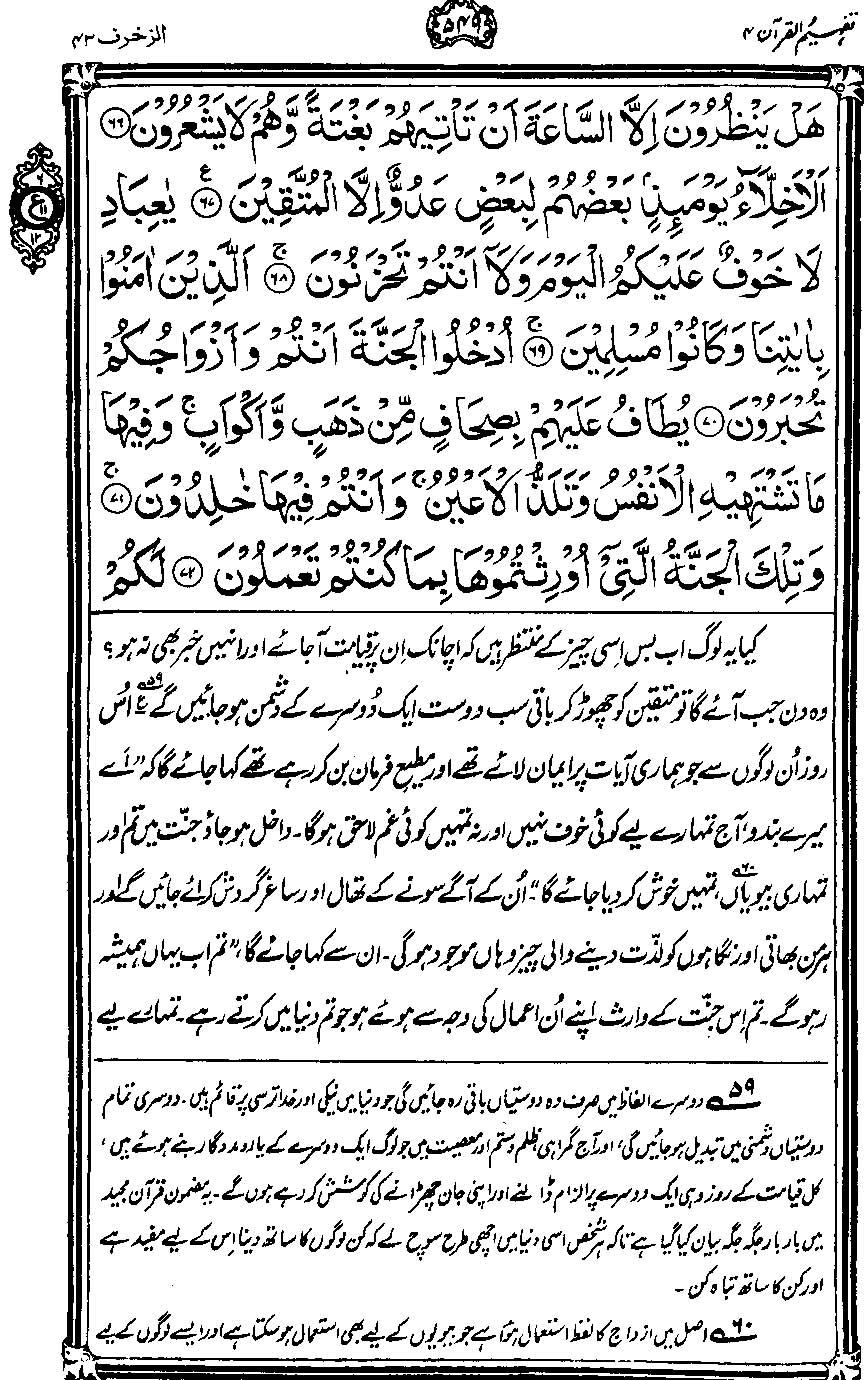 تفہیم القرآن ۴
۵۴۹
الزخرف ۴۳
هَلْ يَنْظُرُوْنَ اِلَّا السَّاعَةَ اَنْ تَاْتِيَهُمْ بَغْتَةً وَّهُمْ لَا يَشْعُرُوْنَ ﴿۶۶﴾
اَلْاَخِلَّآءُ يَوْمَىِٕذٍۭ بَعْضُهُمْ لِبَعْضٍ عَدُوٌّ اِلَّا الْمُتَّقِيْنَ ﴿۶۷﴾ ع يٰعِبَادِ
لَا خَوْفٌ عَلَيْكُمُ الْيَوْمَ وَلَاۤ اَنْتُمْ تَحْزَنُوْنَ ﴿۶۸﴾ ج اَلَّذِيْنَ اٰمَنُوْا
بِاٰيٰتِنَا وَكَانُوْا مُسْلِمِيْنَ ﴿۶۹﴾ ج اُدْخُلُوا الْجَنَّةَ اَنْتُمْ وَاَزْوَاجُكُمْ
تُحْبَرُوْنَ ﴿۷۰﴾ يُطَافُ عَلَيْهِمْ بِصِحَافٍ مِّنْ ذَهَبٍ وَّاَكْوَابٍ ۚ وَفِيْهَا
مَا تَشْتَهِيْهِ الْاَنْفُسُ وَتَلَذُّ الْاَعْيُنُ ۚ وَاَنْتُمْ فِيْهَا خٰلِدُوْنَ ﴿۷۱﴾ ج
وَتِلْكَ الْجَنَّةُ الَّتِيْۤ اُوْرِثْتُمُوْهَا بِمَا كُنْتُمْ تَعْمَلُوْنَ ﴿۷۲﴾ لَكُمْ
۶
ع
۱۱
۱۲
کیا یہ لوگ اب بس اِسی چیز کے منتظر ہیں کہ اچانک اِن پر قیامت آ جائے اور انہیں خبر بھی نہ ہو؟
وہ دن جب آئے گا تو متقین کو چھوڑ کر باقی سب دوست ایک دُوسرے کے دشمن ہو جائیں گے ۵۹ ع اُس
روز اُن لوگوں سے جو ہماری آیات پر ایمان لائے تھے اور مطیع فرمان بن کر رہے تھے کہا جائے گا کہ ”اَے
میرے بندو، آج تمہارے لیے کوئی خوف نہیں اور نہ تمہیں کوئی غم لاحق ہوگا۔ داخل ہو جاؤ جنّت میں تم اور
تمہاری بیویاں ۶۰، تمہیں خوش کر دیا جائے گا“۔ اُن کے آگے سونے کے تھال اور ساغر گردش کرائے جائیں گے اور
ہر من بھاتی اور نگاہوں کو لذّت دینے والی چیز وہاں موجود ہوگی۔ ان سے کہا جائے گا، ”تم اب یہاں ہمیشہ
رہو گے۔ تم اِس جنّت کے وارث اپنے اُن اعمال کی وجہ سے ہوئے ہو جو تم دنیا میں کرتے رہے۔ تمہارے لیے
۵۹ دوسرے الفاظ میں صرف وہ دوستیاں باقی رہ جائیں گی جو دنیا میں نیکی اور خدا ترسی پر قائم ہیں۔ دوسری تمام
دوستیاں دشمنی میں تبدیل ہو جائیں گی، اور آج گمراہی، ظلم و ستم اور معصیت میں جو لوگ ایک دوسرے کے یار و مددگار بنے ہوئے ہیں،
کل قیامت کے روز وہی ایک دوسرے پر الزام ڈالنے اور اپنی جان چھڑانے کی کوشش کر رہے ہوں گے۔ یہ مضمون قرآن مجید
میں بار بار جگہ جگہ بیان کیا گیا ہے تاکہ ہر شخص اسی دنیا میں اچھی طرح سوچ لے کہ کن لوگوں کا ساتھ دینا اِس کے لیے مفید ہے
اور کن کا ساتھ تباہ کن۔
۶۰ اصل میں ازواج کا لفظ استعمال ہوا ہے جو بیویوں کے لیے بھی استعمال ہو سکتا ہے اور ایسے لوگوں کے لیے